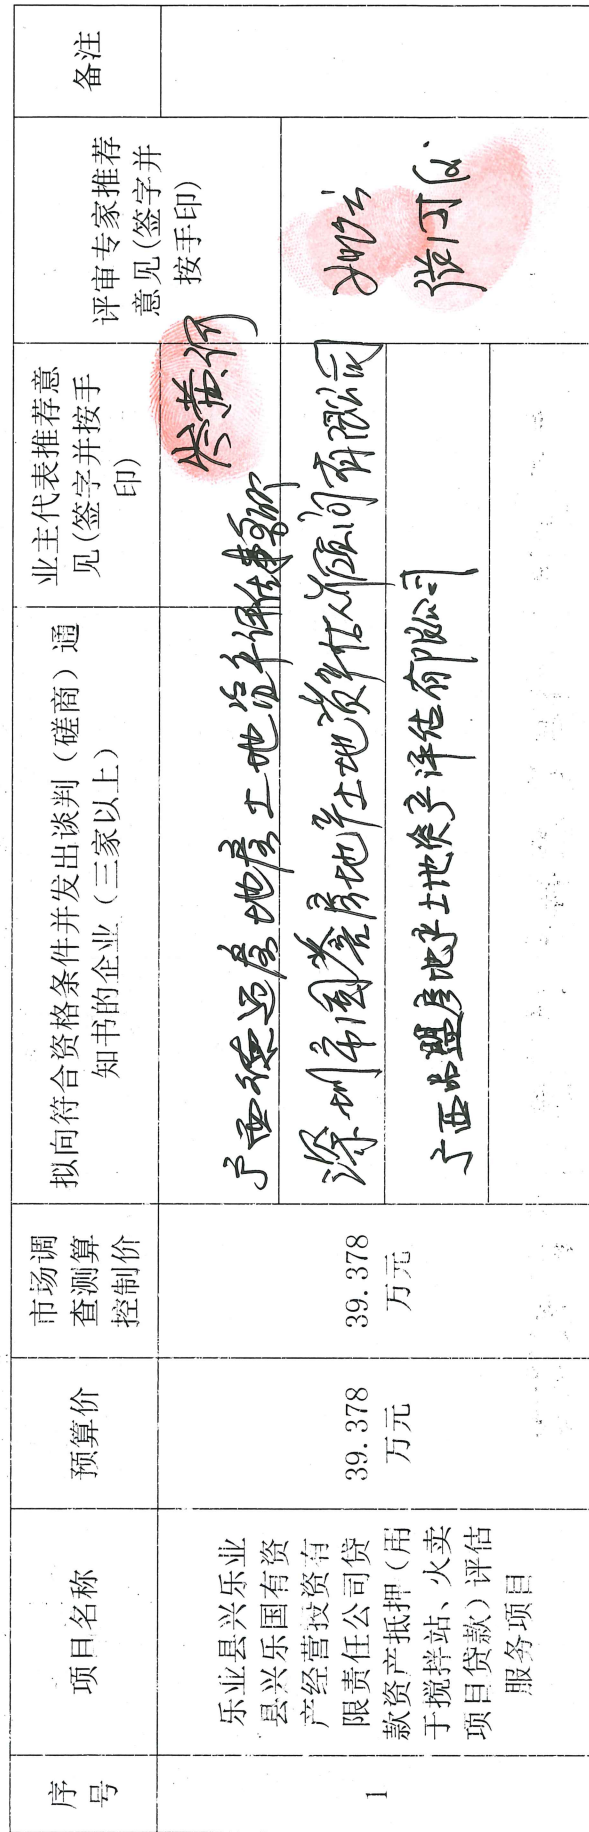 序
号
项目名称
预算价
市场调
查测算
控制价
拟向符合资格条件并发出谈判（磋商）通
知书的企业（三家以上）
业主代表推荐意
见(签字并按手
印)
评审专家推荐
意见(签字并
按手印)
备注
1
乐业县兴乐业
县兴乐国有资
产经营投资有
限责任公司贷
款资产抵押（用
于搅拌站、火卖
项目贷款）评估
服务项目
39.378
万元
39.378
万元
广西德远房地产土地资产评估事务所
深圳市国誉房地产土地资产评估顾问有限公司
广西品盟房地产土地资产评估有限公司